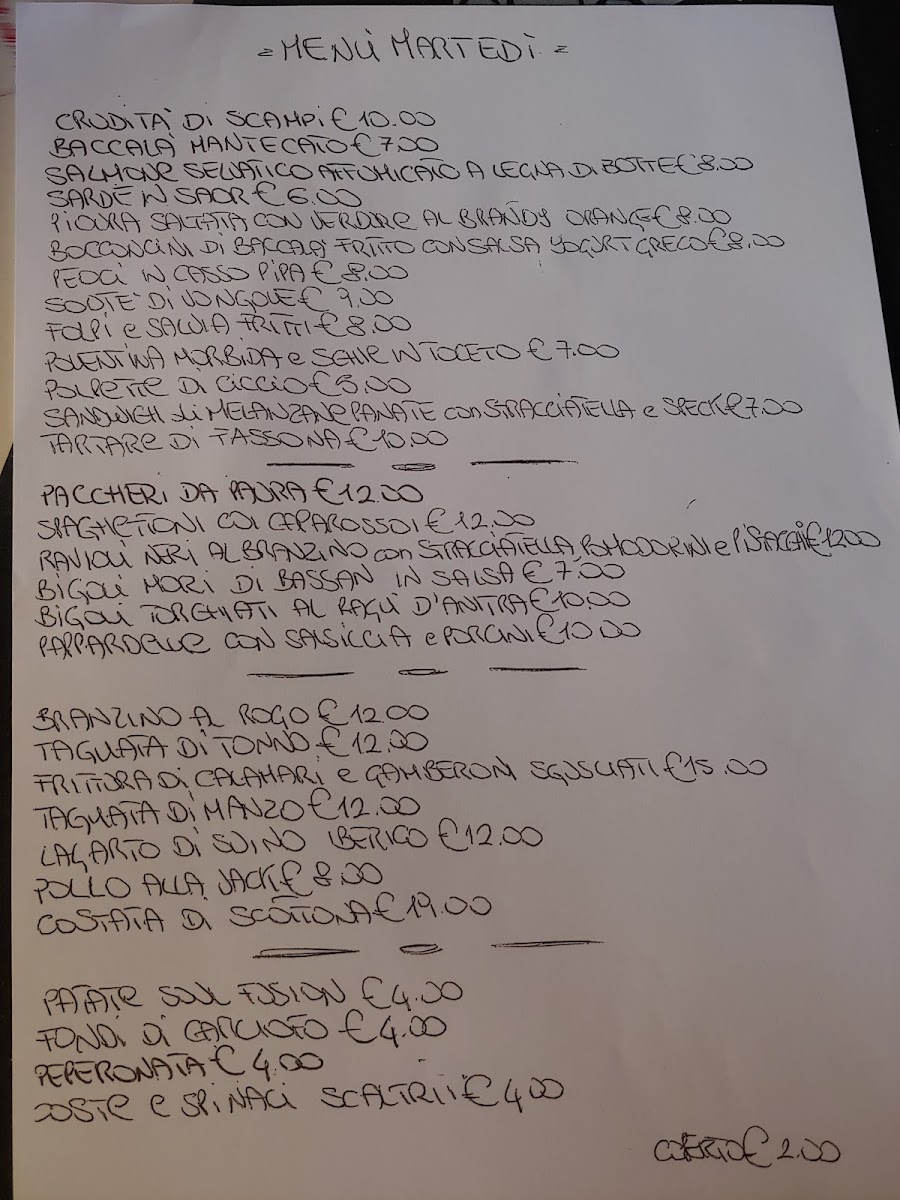 = MENÙ MARTEDÌ =
CRUDITA' DI SCAMPI € 10.00
BACCALÀ MANTECATO € 7.00
SALMONE SELVATICO AFFUMICATO A LEGNA DI BOTTE € 8.00
SARDE IN SAOR € 6.00
PIOVRA SALTATA CON VERDURE AL BRANDY ORANGE € 8.00
BOCCONCINI DI BACCALÀ FRITTO CON SALSA YOGURT GRECO € 8.00
PEOCI IN CASSO PIPA € 8.00
SOUTE' DI VONGOLE € 9.00
FOLPI e SALVIA FRITTI € 8.00
POLENTINA MORBIDA e SEPIE IN TOCETO € 7.00
POLPETTE DI CICCIO € 5.00
SANDWICH di MELANZANE PANATE con STRACCIATELLA e SPECK € 7.00
TARTARE DI TASSONA € 10.00
PACCHERI DA PAURA € 12.00
SPAGHETTONI COI CAPAROSSOI € 12.00
RAVIOLI NERI AL BRANZINO con STRACCIATELLA, POMODORINI e PISTACCHI € 12.00
BIGOLI MORI DI BASSAN IN SALSA € 7.00
BIGOLI TORCHIATI AL RAGÙ D'ANITRA € 10.00
PAPPARDELLE CON SALSICCIA e PORCINI € 10.00
BRANZINO AL ROGO € 12.00
TAGLIATA DI TONNO € 12.00
FRITTURA DI CALAMARI e GAMBERONI SGUSCIATI € 15.00
TAGLIATA DI MANZO € 12.00
LAGARTO DI SUINO IBERICO € 12.00
POLLO ALLA JACK € 8.00
COSTATA DI SCOTTONA € 19.00
PATATE SOUL FUSION € 4.00
FONDI DI CARCIOFO € 4.00
PEPERONATA € 4.00
COSTE e SPINACI SCALTRITI € 4.00
COPERTO € 2.00